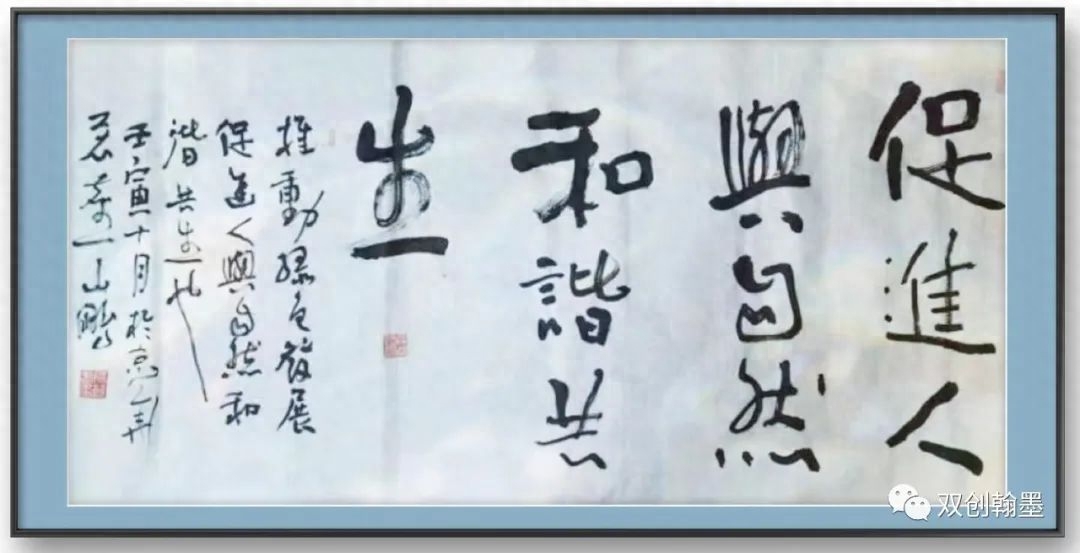 促進人
與自然
和諧共
生
推動綠色發展
促進人與自然和
諧共生也
壬寅十月於京
山
双创翰墨